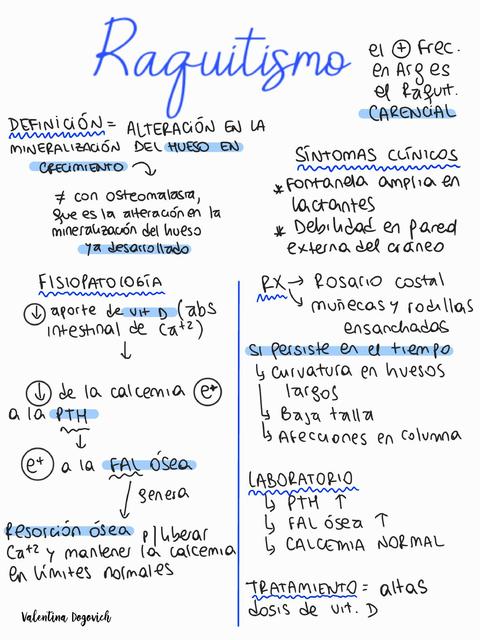 Raquitismo
el + Frec.
en Arg es
el Raquit.
CARENCIAL
DEFINICIÓN = ALTERACIÓN EN LA
MINERALIZACIÓN DEL HUESO EN
CRECIMIENTO
≠ con osteomalasia,
que es la alteración en la
mineralización del hueso
ya desarrollado
SÍNTOMAS CLÍNICOS
* Fontanela amplia en
lactantes
* Debilidad en pared
externa del cráneo
FISIOPATOLOGÍA
↓ aporte de vit D (abs
intestinal de Ca+2)
↓
↓ de la calcemia e+
a la PTH
↓
e+ a la FAL ósea
↓ genera
Resorción ósea p/ liberar
Ca+2 y mantener la calcemia
en límites normales
Valentina Dogovich
RX → Rosario costal
↘ muñecas y rodillas
ensanchadas
si persiste en el tiempo
↳ curvatura en huesos
largos
↳ Baja talla
↳ Afecciones en columna
LABORATORIO
↳ PTH ↑
↳ FAL ósea ↑
↳ CALCEMIA NORMAL
TRATAMIENTO = altas
dosis de vit. D